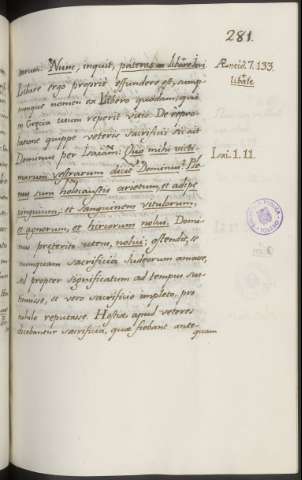 281.
Nunc, inquit, pateras libate Iovi
Æneid. 7. 133.
libate
Libare ergo proprie effundere est, sump-
tumque nomen ex Libero quodam, qui
in Grecia usum reperit vitis. De repro-
batione quippe veteris sacrificii dicit
Dominus per Isaiam: Quo mihi victi-
Isai. 1. 11.
marum vestrarum dicit Dominus? Ple-
nus sum holocaustis arietum, et adipe
pinguium, et sanguinem vitulorum,
et agnorum, et hircorum nolui. Domi-
nus preterito utens, nolui; ostendit, se
numquam sacrificia Judeorum amare,
sed propter significatum ad tempus sus-
tinuisse, et vero sacrificio impleto, pro
nihilo reputasse. Hostiæ apud veteres
dicebantur sacrificia, quæ fiebant ante-
quam